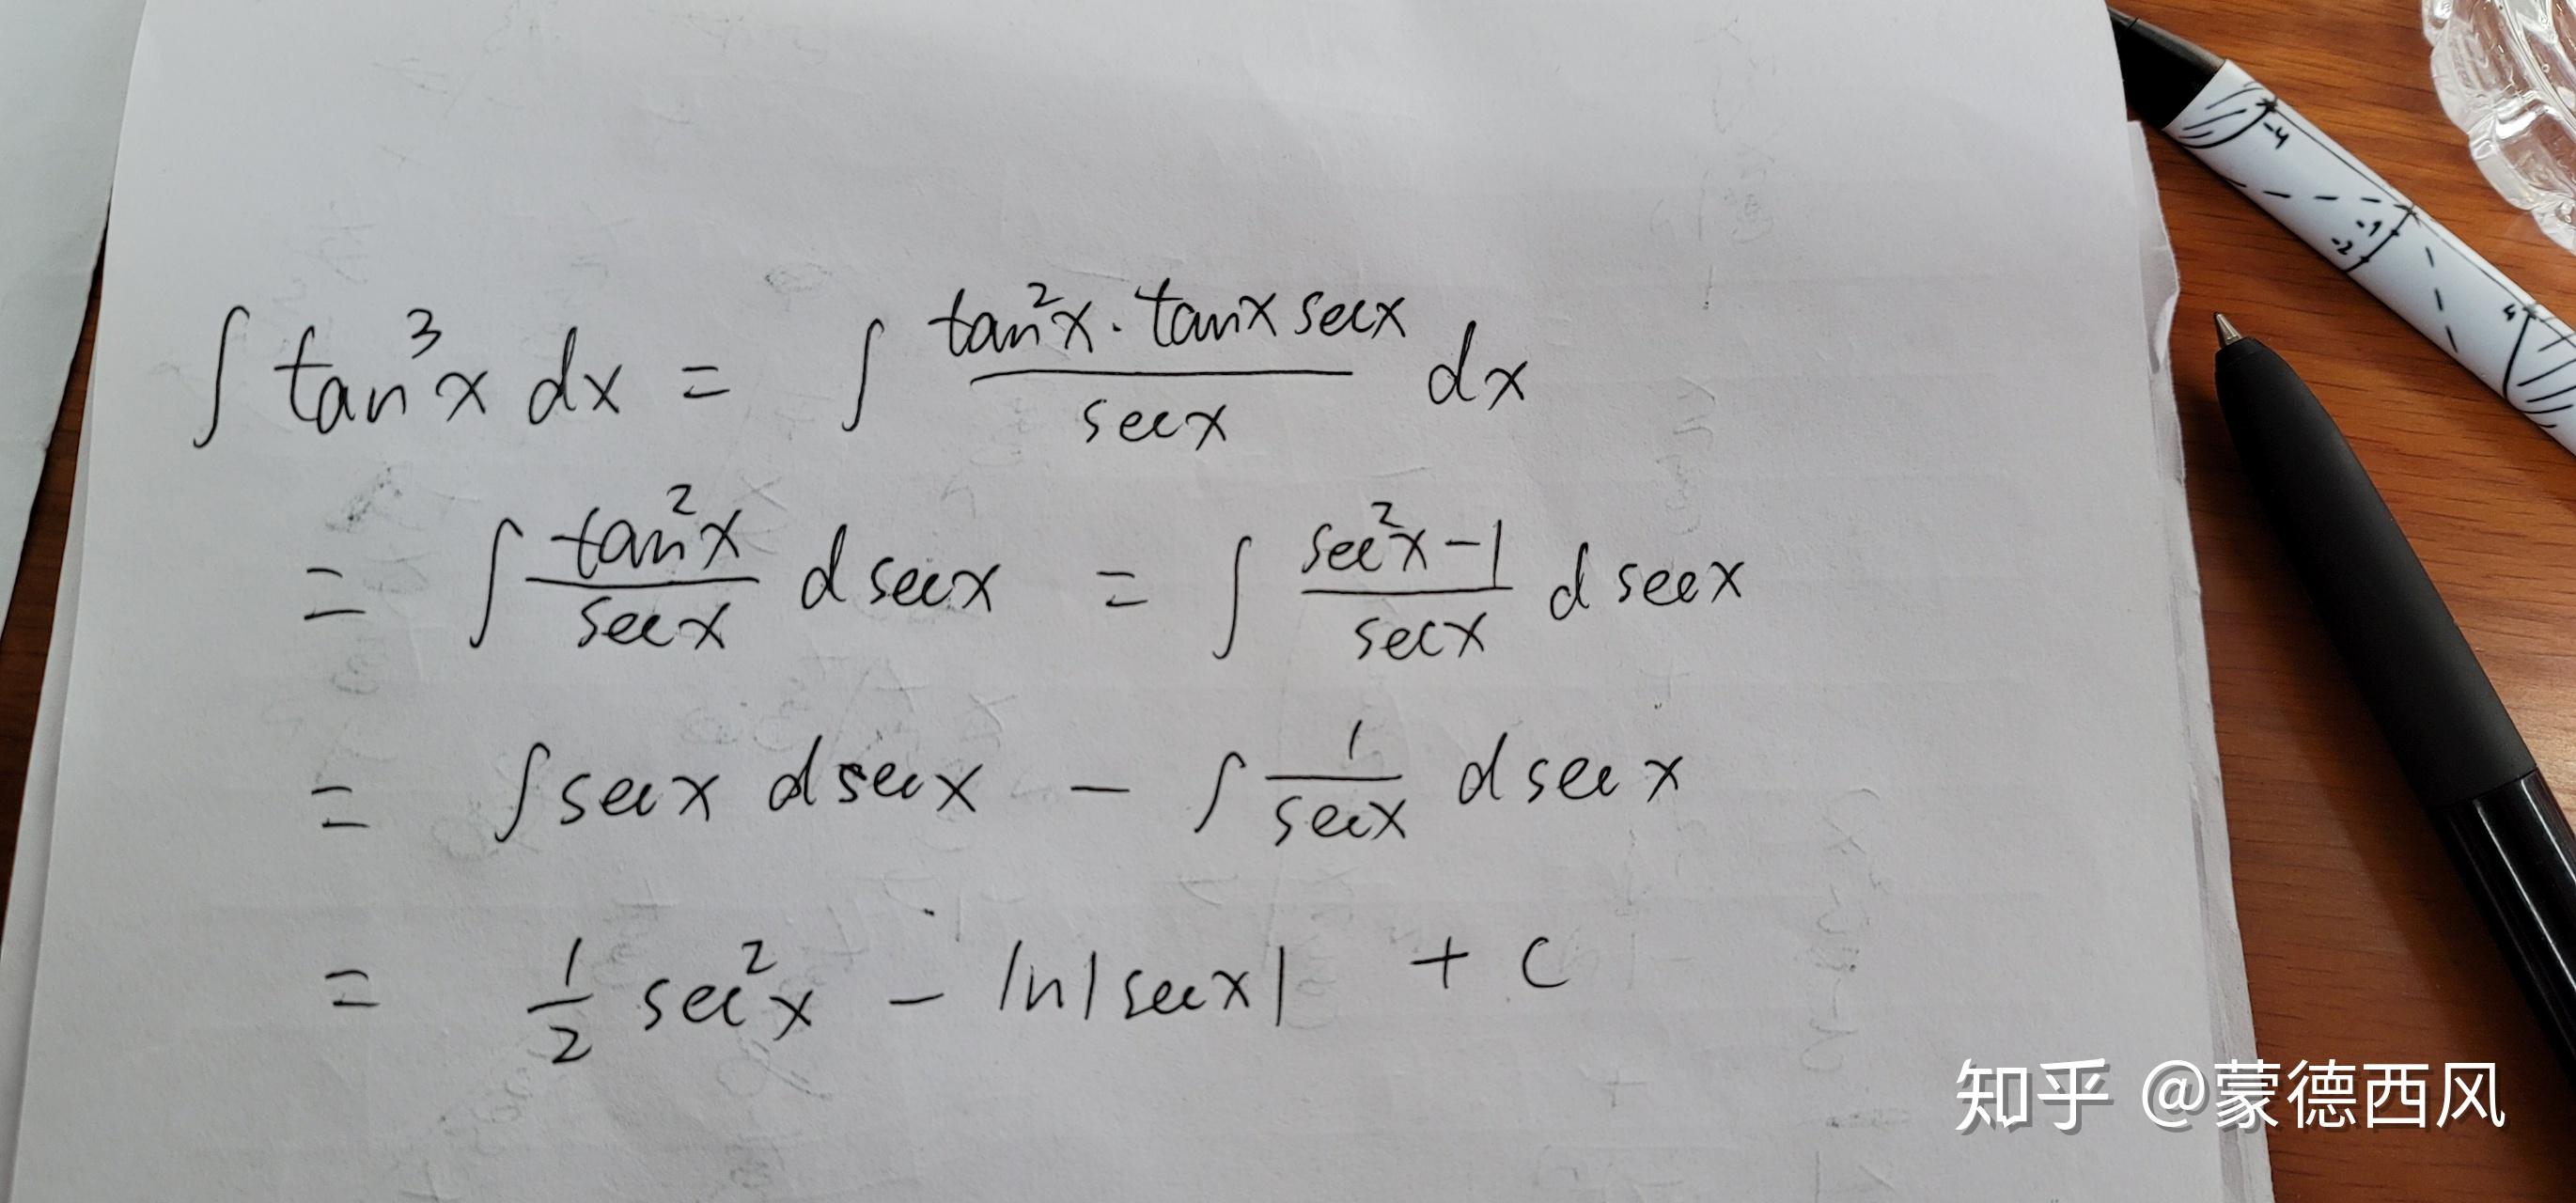 ∫ tan³x dx = ∫ \frac{tan²x · tanx secx}{secx} dx
= ∫ \frac{tan²x}{secx} d secx = ∫ \frac{sec²x - 1}{secx} d secx
= ∫ secx d secx - ∫ \frac{1}{secx} d secx
= \frac{1}{2} sec²x - ln|secx| + C
知乎 @蒙德西风